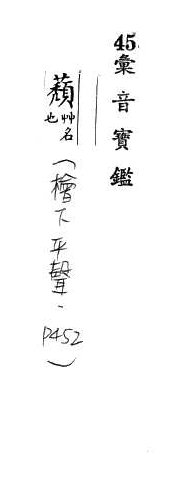 45.彙音寶鑑
蘈艸名也
(檜下平聲、P452)